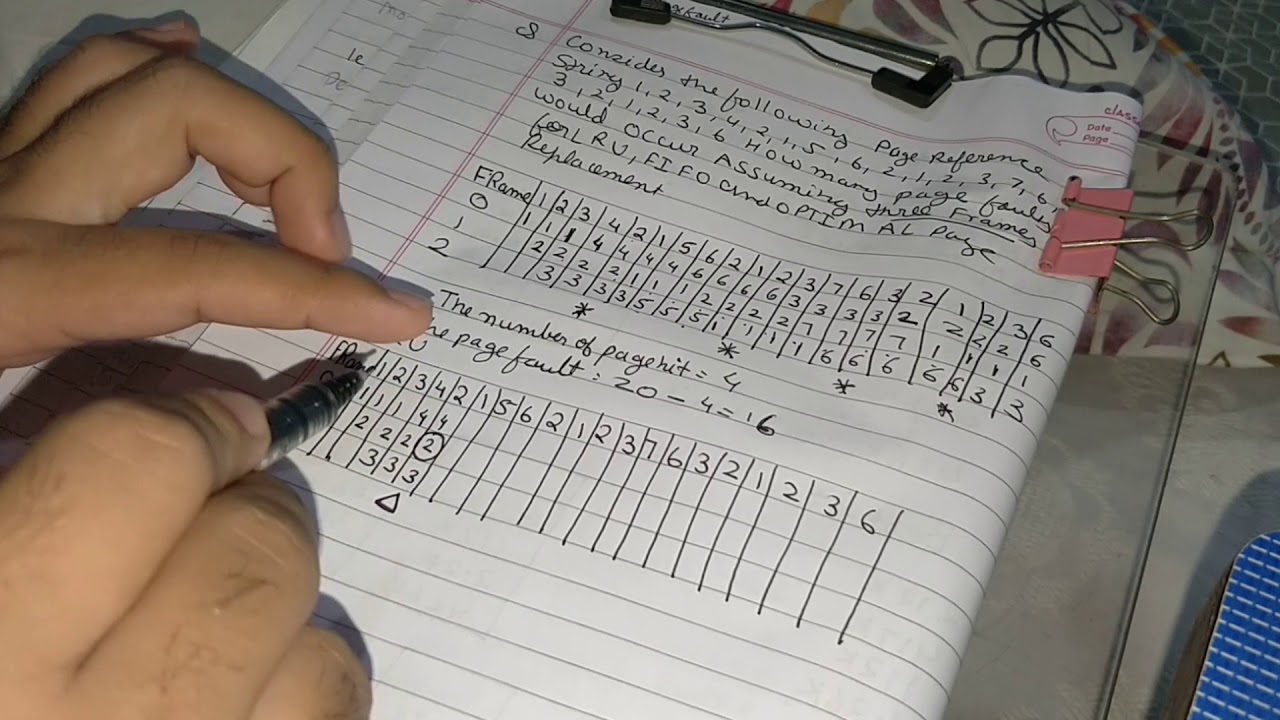 fault
class
Date
Page
Q Consider the following Page Reference
String 1, 2, 3, 4, 2, 1, 5, 6, 2, 1, 2, 3, 7, 6,
3, 2, 1, 2, 3, 6 How many page faults
would occur Assuming three Frames
for LRU, FIFO and OPTIMAL Page
Replacement
FRame 1 2 3 4 2 1 5 6 2 1 2 3 7 6 3 2 1 2 3 6
0 1 1 1 4 4 4 4 6 6 6 6 3 3 3 3 2 2 2 2 6
1 2 2 2 2 1 1 1 2 2 2 2 7 7 7 7 1 1 1 1
2 3 3 3 3 5 5 5 1 1 1 1 6 6 6 6 6 3 3
* * * *
The number of page hit = 4
The page fault : 20 - 4 = 16
FRame 1 2 3 4 2 1 5 6 2 1 2 3 7 6 3 2 1 2 3 6
1 1 1 4 4
2 2 2 2
3 3 3